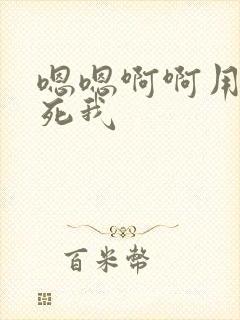 嗯嗯啊啊用
死我
百米幣